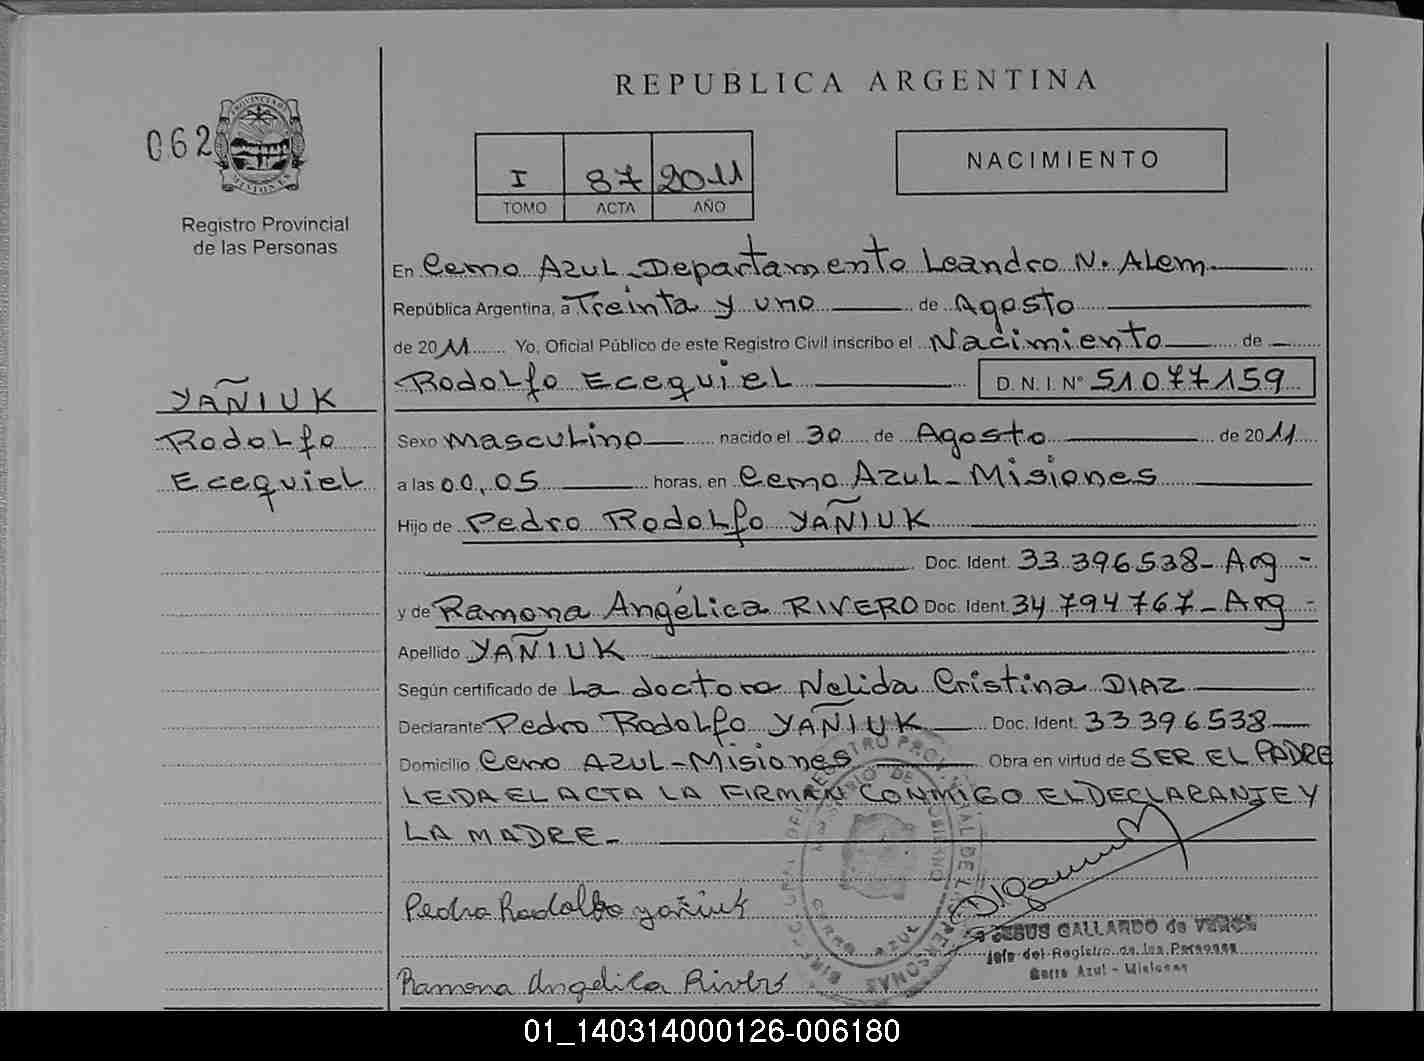 REPUBLICA ARGENTINA
062
PROVINCIA DE MISIONES
Registro Provincial
de las Personas
I 87 2011
TOMO ACTA AÑO
NACIMIENTO
En Cerro AZUL - Departamento Leandro N. Alem
República Argentina, a Treinta y uno de Agosto
de 2011 Yo, Oficial Público de este Registro Civil inscribo el Nacimiento de
Rodolfo Ecequiel D. N. I. N° 51077159
YAÑIUK
Rodolfo
Ecequiel
Sexo masculino nacido el 30 de Agosto de 2011
a las 00,05 horas, en Cerro AZUL - Misiones
Hijo de Pedro Rodolfo YAÑIUK
Doc. Ident. 33.396.538 - Arg -
y de Ramona Angélica RIVERO Doc. Ident. 34 794 767 - Arg -
Apellido YAÑIUK
Según certificado de La doctora Nelida Cristina DIAZ
Declarante Pedro Rodolfo YAÑIUK Doc. Ident. 33396538
Domicilio Cerro AZUL - Misiones Obra en virtud de SER EL PADRE
LEIDA EL ACTA LA FIRMAN CONMIGO EL DECLARANTE Y
LA MADRE -
Pedro Rodolfo yañiuk
JESUS GALLARDO de
Jefe del Registro de las Personas
Cerro Azul - Misiones
Ramona Angelica Rivero
01_140314000126-006180